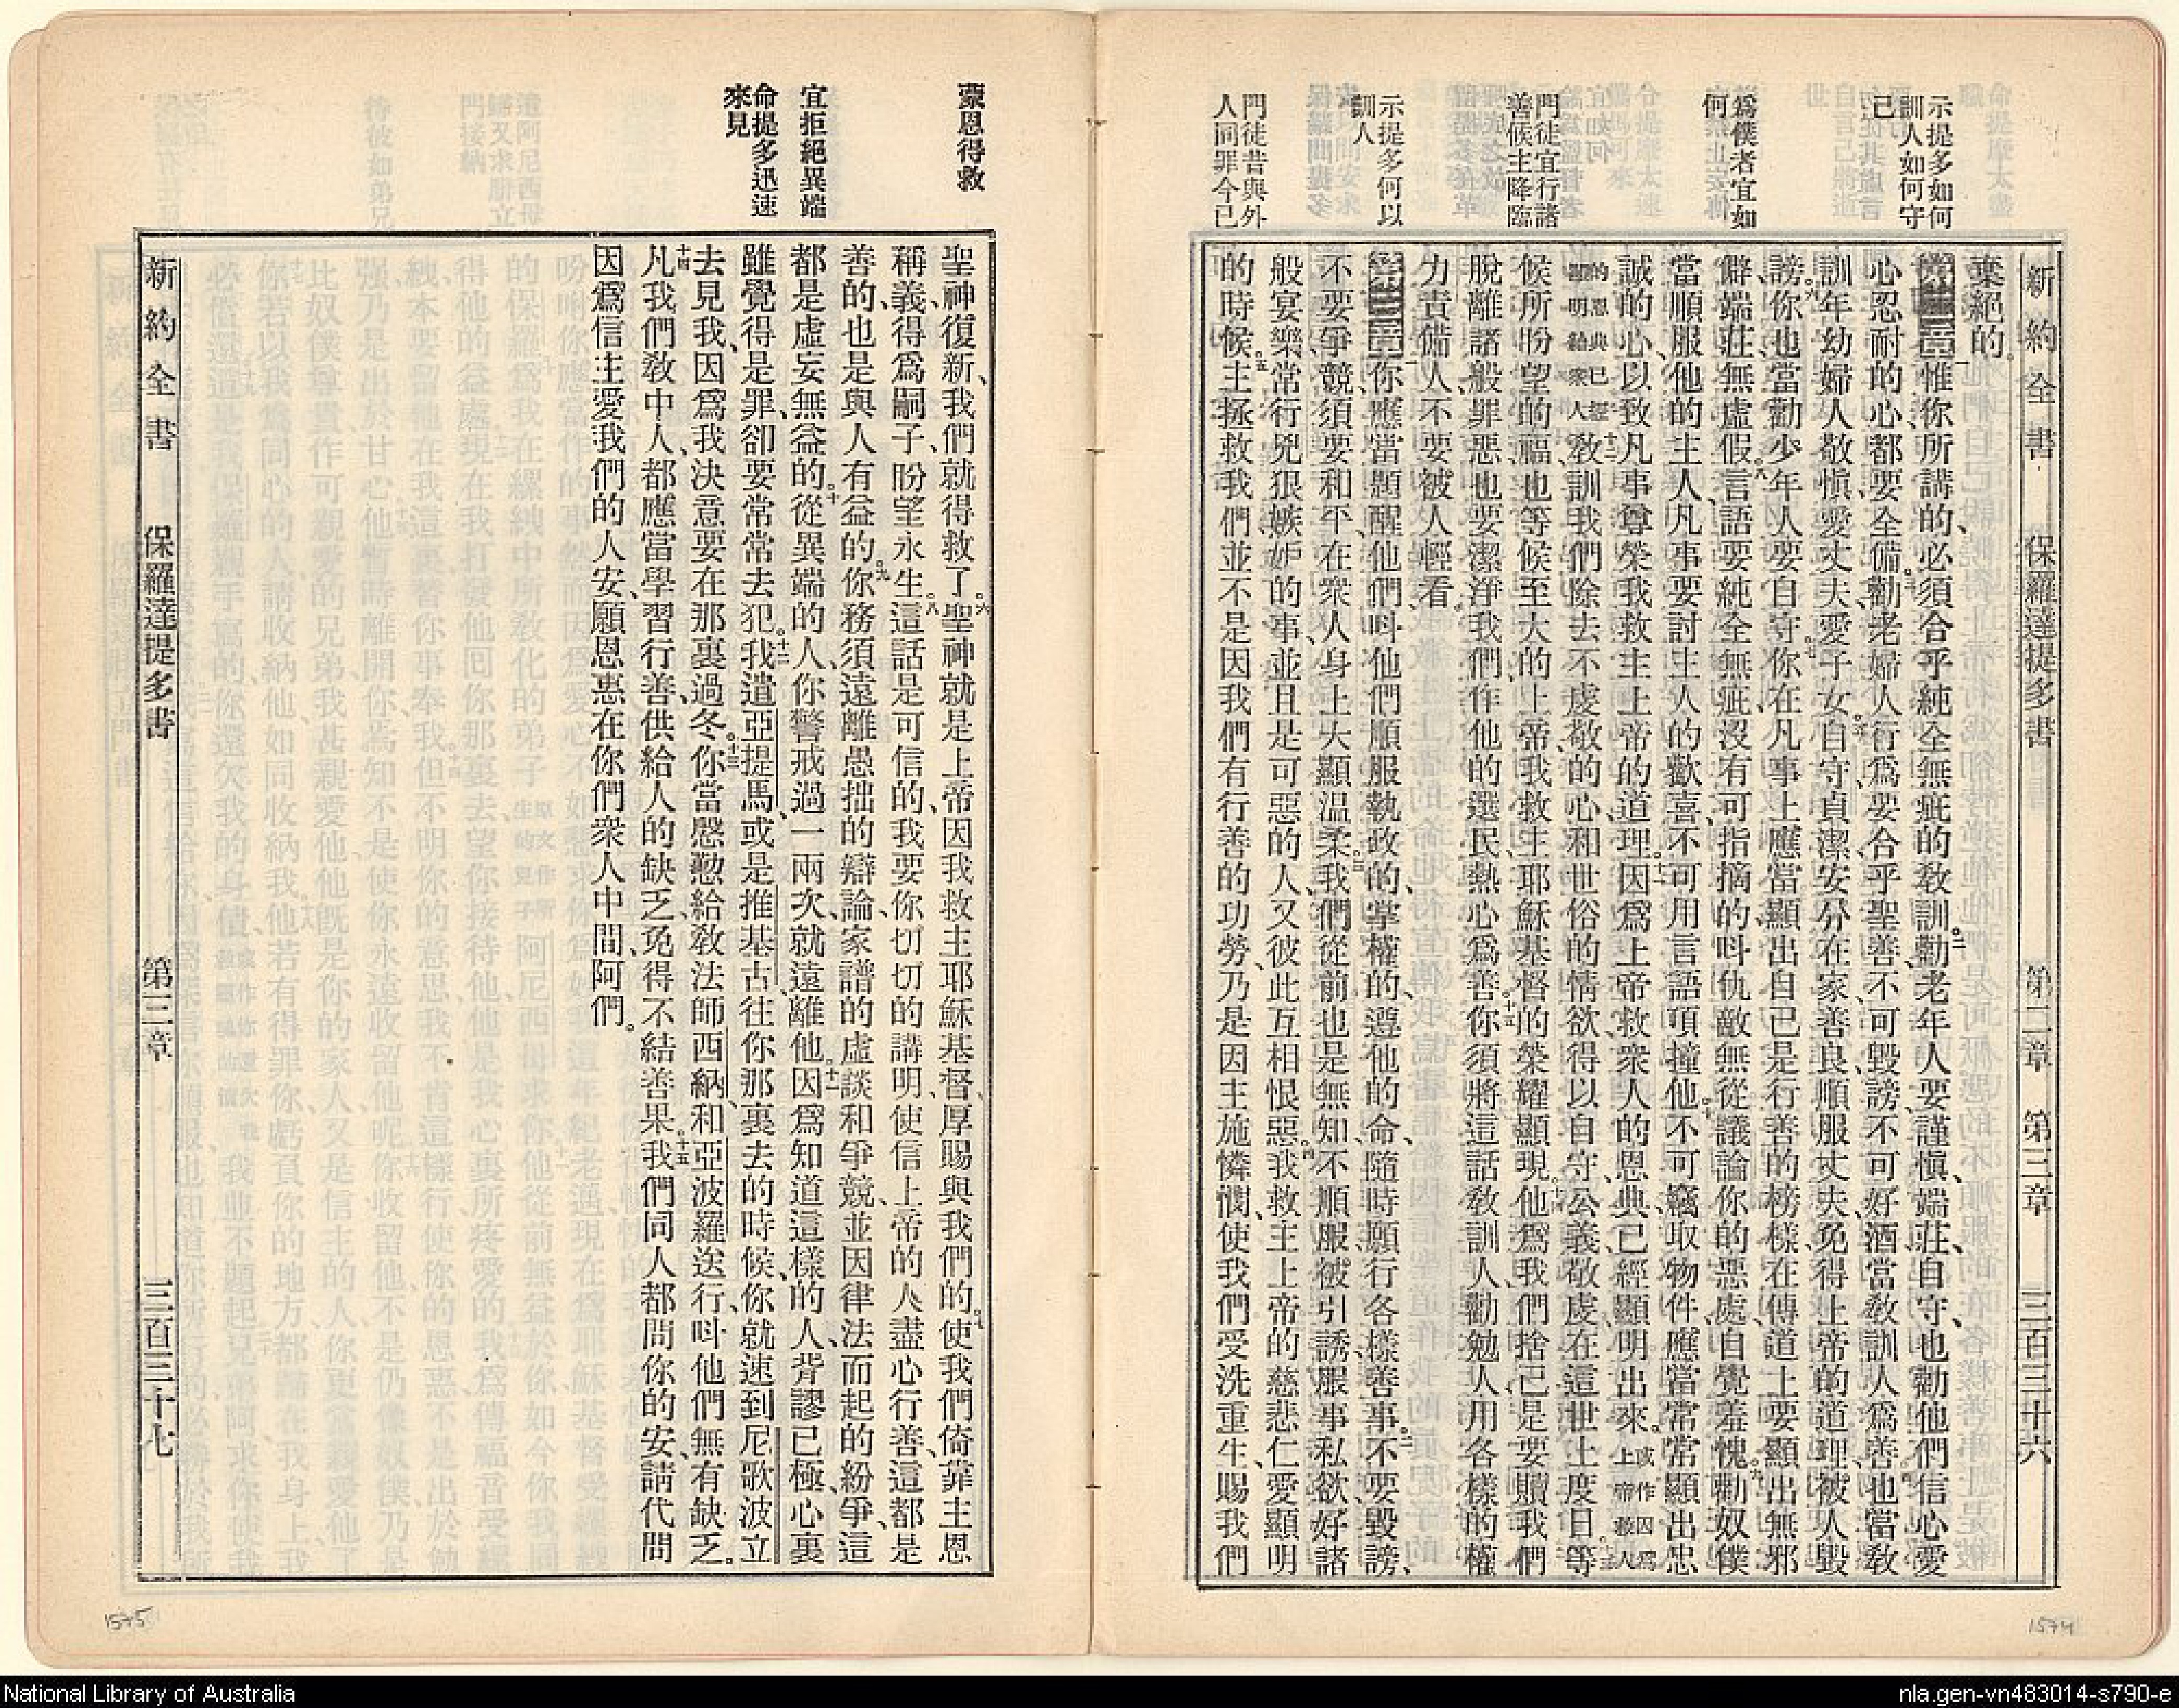 示提多如何
訓人如何守
己
爲僕者宜如
何
門徒宜行諸
善候主降臨
示提多何以
訓人
門徒昔與外
人同罪今已
新約全書 保羅達提多書 第二章 第三章 三百三十六
棄絕的。
第二章一惟你所講的、必須合乎純全無疵的敎訓。二勸老年人要謹愼、端莊、自守、也勸他們信心愛
心忍耐的心、都要全備。三勸老婦人行爲要合乎聖善、不可毀謗、不可好酒、當敎訓人爲善。四也當敎
訓年幼婦人敬愼、愛丈夫、愛子女。五自守、貞潔、安分在家、善良、順服丈夫、免得上帝的道理、被人毀
謗。六你也當勸少年人要自守。七你在凡事上、應當顯出自己是行善的榜樣、在傳道上、要顯出無邪
僻、端莊、無虛假。八言語要純全無疵、沒有可指摘的、叫仇敵無從議論你的惡處、自覺羞愧。九勸奴僕
當順服他的主人、凡事要討主人的歡喜、不可用言語頂撞他。十不可竊取物件、應當常常顯出忠
誠的心、以致凡事尊榮我救主上帝的道理。十一因爲上帝救衆人的恩典、已經顯明出來。或作因爲上帝救人
的恩典已經顯明給衆人十二敎訓我們除去不虔敬的心、和世俗的情欲、得以自守、公義、敬虔、在這世上度日。十三等
候所盼望的福、也等候至大的上帝、我救主耶穌基督的榮耀顯現。十四他爲我們捨己、是要贖我們
脫離諸般罪惡、也要潔淨我們、作他的選民、熱心爲善。十五你須將這話敎訓人、勸勉人、用各樣的權
力責備人、不要被人輕看。
第三章一你應當題醒他們、叫他們順服執政的、掌權的、遵他的命、隨時願行各樣善事。二不要毀謗、
不要爭競、須要和平、在衆人身上大顯温柔。三我們從前也是無知、不順服、被引誘、服事私欲、好諸
般宴樂、常行兇狠嫉妒的事、並且是可惡的人、又彼此互相恨惡。四我救主上帝的慈悲仁愛顯明
的時候。五主拯救我們、並不是因我們有行善的功勞、乃是因主施憐憫、使我們受洗重生、賜我們
蒙恩得救
宜拒絕異端
命提多迅速
來見
聖神復新、我們就得救了。六聖神就是上帝因我救主耶穌基督、厚賜與我們的。七使我們倚靠主恩
稱義、得爲嗣子、盼望永生。八這話是可信的、我要你切切的講明、使信上帝的人盡心行善、這都是
善的、也是與人有益的。九你務須遠離愚拙的辯論、家譜的虛談、和爭競、並因律法而起的紛爭、這
都是虛妄無益的。十從異端的人、你警戒過一兩次、就遠離他。十一因爲知道這樣的人、背謬已極、心裏
雖覺得是罪、卻要常常去犯。十二我遣亞提馬、或是推基古、往你那裏去的時候、你就速到尼歌波立
去見我、因爲我決意要在那裏過冬。十三你當慇懃給敎法師西納、和亞波羅送行、叫他們無有缺乏。
十四凡我們敎中人、都應當學習行善、供給人的缺乏、免得不結善果。十五我們同人都問你的安、請代問
因爲信主愛我們的人安、願恩惠在你們衆人中間、阿們。
新約全書 保羅達提多書 第三章 三百三十七
1575
1574
National Library of Australia
nla.gen-vn483014-s790-e